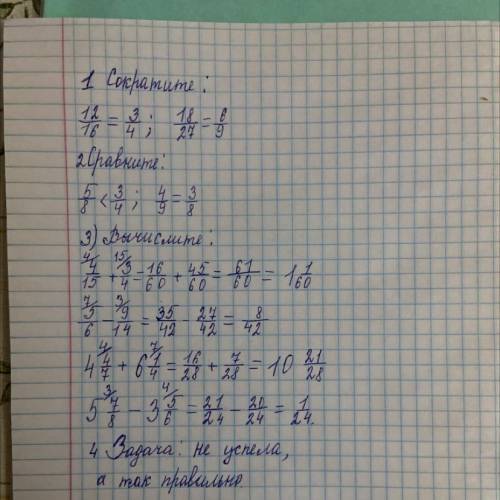 1 Сократите:
12/16 = 3/4; 18/27 = 6/9
2 Сравните:
5/8 < 3/4; 4/9 = 3/8
3) Вычислите:
4/ 4/15 + 15/ 3/4 = 16/60 + 45/60 = 61/60 = 1 1/60
7/ 5/6 - 3/ 9/14 = 35/42 - 27/42 = 8/42
4 4/ 4/7 + 6 7/ 1/4 = 16/28 + 7/28 = 10 21/28
5 3/ 7/8 - 3 4/ 5/6 = 21/24 - 20/24 = 1/24.
4 Задача: не успела,
а так правильно.